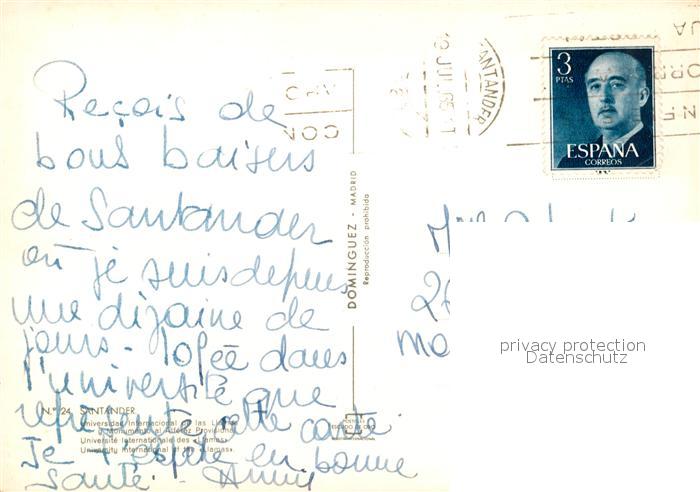 Reçois de
bons baisers
de Santander
où je suis depuis
une dizaine de
jours - logée dans
l'université que
représente cette carte.
Je t'espère en bonne
Santé. Anny
Nº 24. SANTANDER
Universidad Internacional de las Llamas
Monumento al Alférez Provisional
Université Internationale des «Llamas»
University International of the «Llamas»
DOMINGUEZ - MADRID
Reproducción prohibida
ESCUDO DE ORO
SANTANDER
CON
3
PTAS
ESPAÑA
CORREOS
privacy protection
Datenschutz